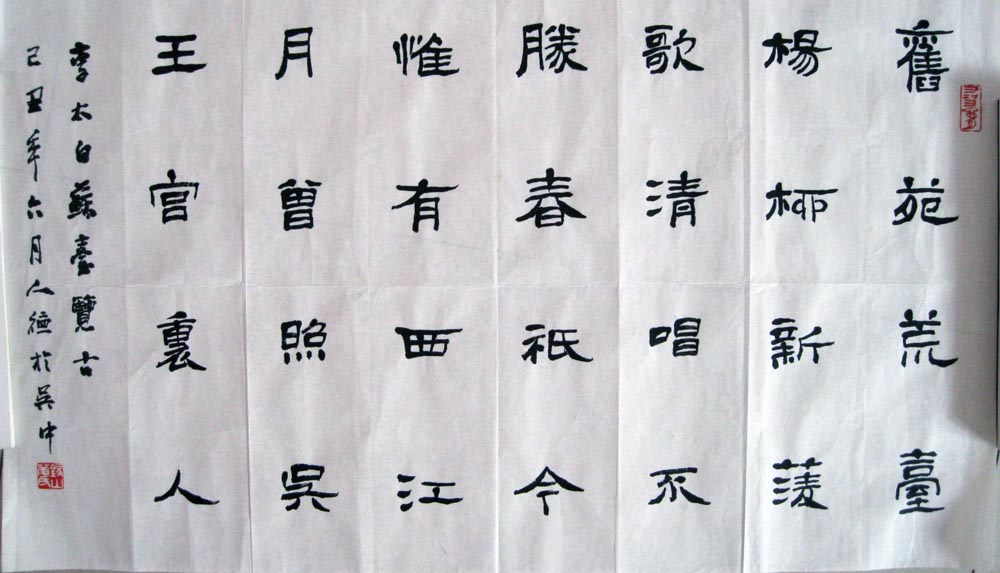 舊苑荒臺
楊柳新菱
歌清唱不
勝春祇今
惟有西江
月曾照吳
王宮裏人
李太白蘇臺覽古
己丑年六月人德於吳中